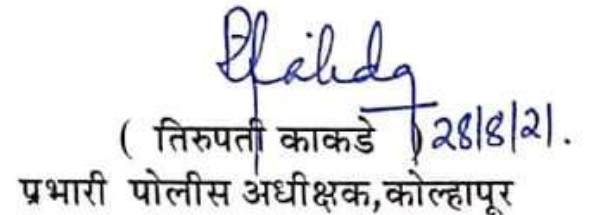 ( तिरुपती काकडे ) 28/8/21.
प्रभारी पोलीस अधीक्षक,कोल्हापूर